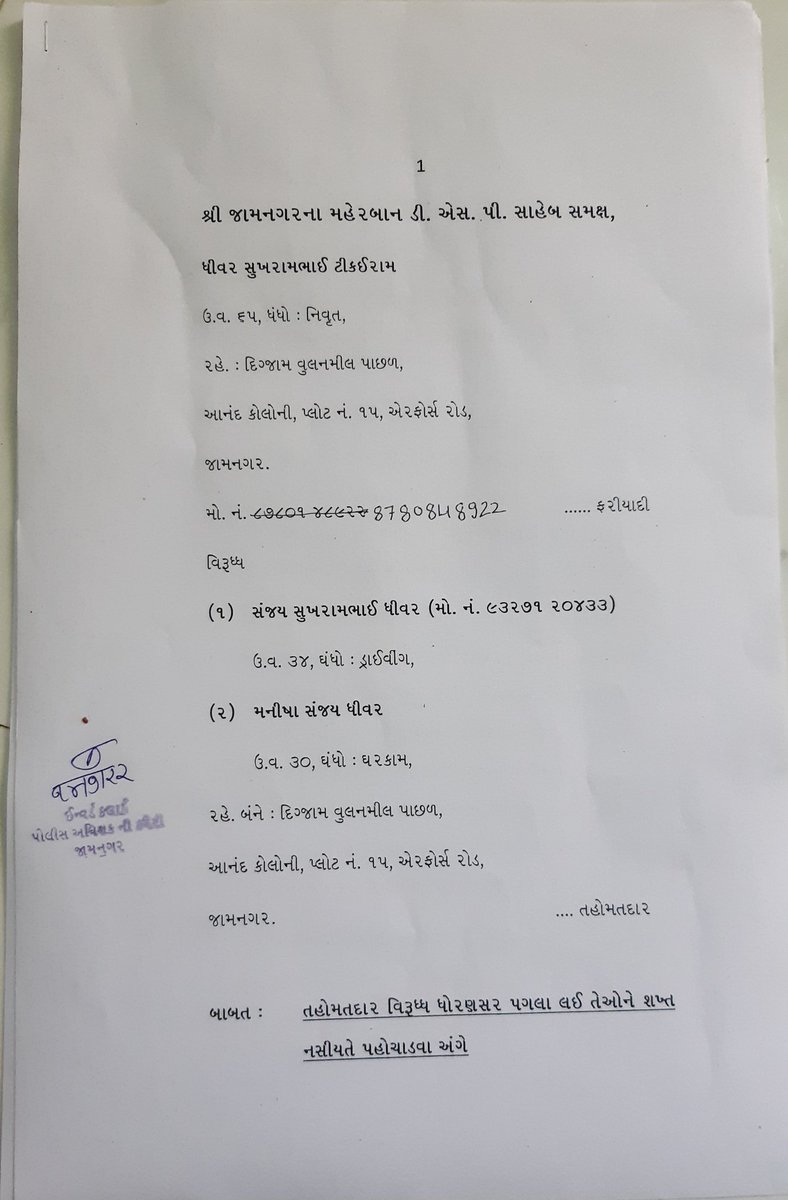 1
શ્રી જામનગરના મહેરબાન ડી. એસ. પી. સાહેબ સમક્ષ,
ધીવર સુખરામભાઈ ટીકઈરામ
ઉ.વ. ૬૫, ધંધો : નિવૃત,
રહે. : દિગ્જામ વુલનમીલ પાછળ,
આનંદ કોલોની, પ્લોટ નં. ૧૫, એરફોર્સ રોડ,
જામનગર.
મો. નં. ૮૭૮૦૧ ૪૮૯૨૨ 8780848922 ...... ફરીયાદી
વિરૂધ્ધ
(૧) સંજય સુખરામભાઈ ધીવર (મો. નં. ૯૩૨૭૧ ૨૦૪૩૩)
ઉ.વ. ૩૪, ધંધો : ડ્રાઈવીંગ,
(૨) મનીષા સંજય ધીવર
ઉ.વ. ૩૦, ધંધો : ઘરકામ,
રહે. બંને : દિગ્જામ વુલનમીલ પાછળ,
આનંદ કોલોની, પ્લોટ નં. ૧૫, એરફોર્સ રોડ,
જામનગર. .... તહોમતદાર
ઈન્વર્ડ કલાર્ક
પોલીસ અધિક્ષક ની કચેરી
જામનગર
બાબત : તહોમતદાર વિરૂધ્ધ ધોરણસર પગલા લઈ તેઓને શખ્ત
નસીયતે પહોચાડવા અંગે